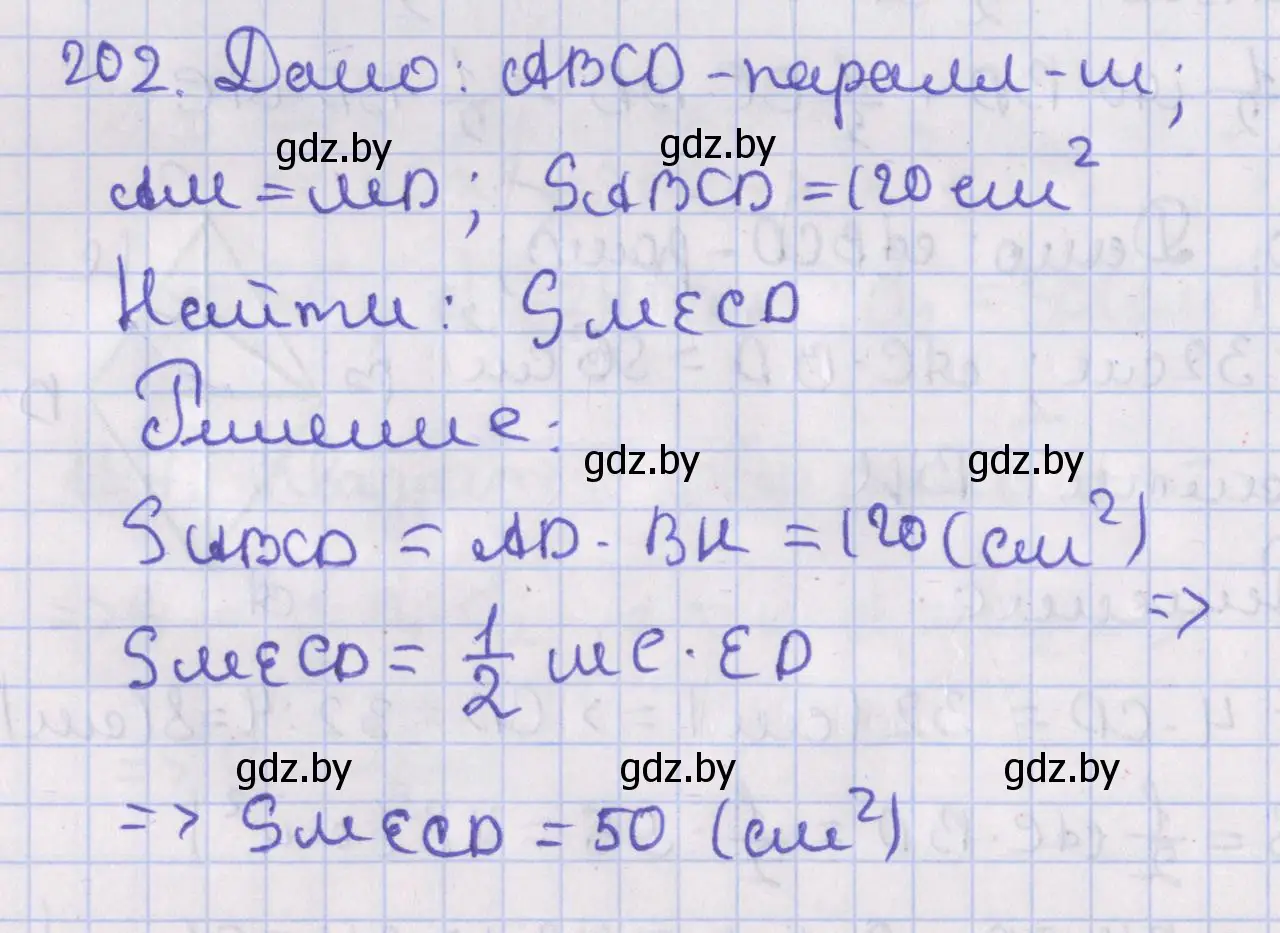 202. Дано: ABCD - паралл-м;
gdz.by gdz.by
AM = MD; SABCD = 120 см²
Найти: SMECD
Решение:
gdz.by gdz.by
SABCD = AD · BK = 120 (см²)
=>
SMECD = 1/2 MC · ED
gdz.by gdz.by gdz.by
=> SMECD = 50 (см²)